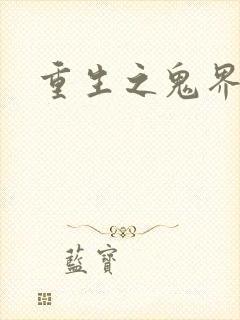 重生之鬼界
藍寶